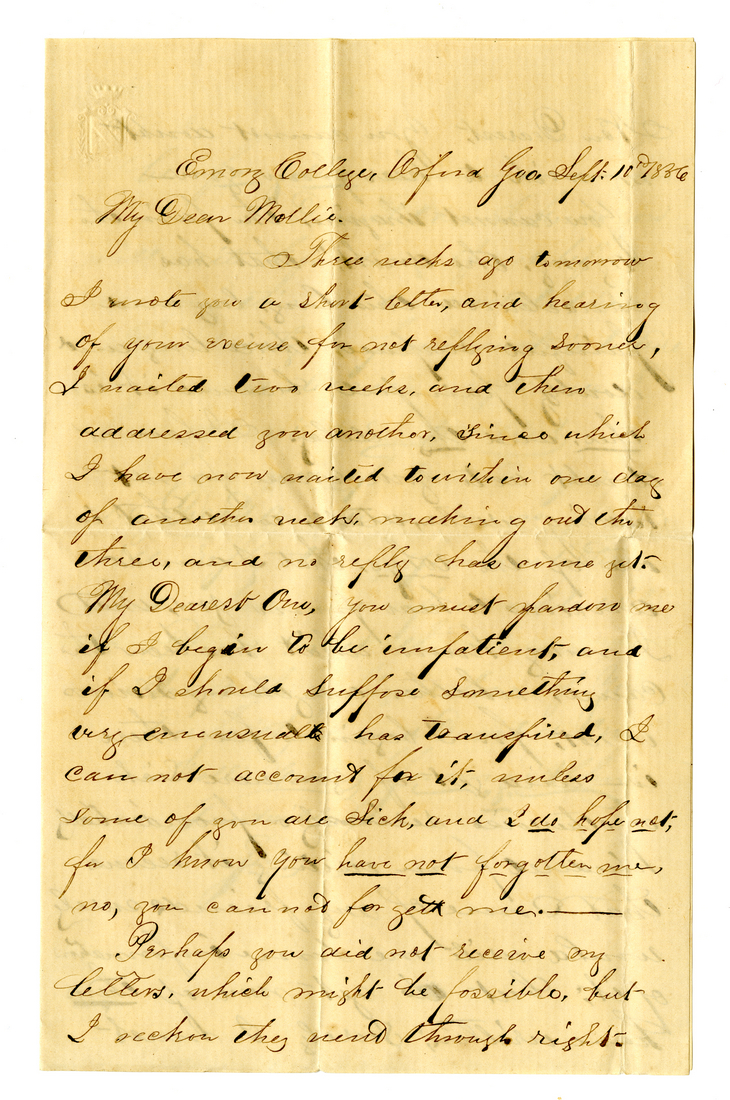 Emory College, Oxford Geo. Sept. 10th 1856
My Dear Mollie.
Three weeks ago tomorrow
I wrote you a short letter, and hearing
of your excuse for not replying sooner,
I waited two weeks, and then
addressed you another, since which
I have now waited to within one day
of another week, making out the
three, and no reply has come yet.
My Dearest One, you must pardon me
if I begin to be impatient, and
if I should suppose something
very unusual has transpired, I
can not account for it, unless
some of you are sick, and I do hope not,
for I know you have not forgotten me,
no, you can not forget me.
Perhaps you did not receive my
letters, which might be possible, but
I reckon they went through right.